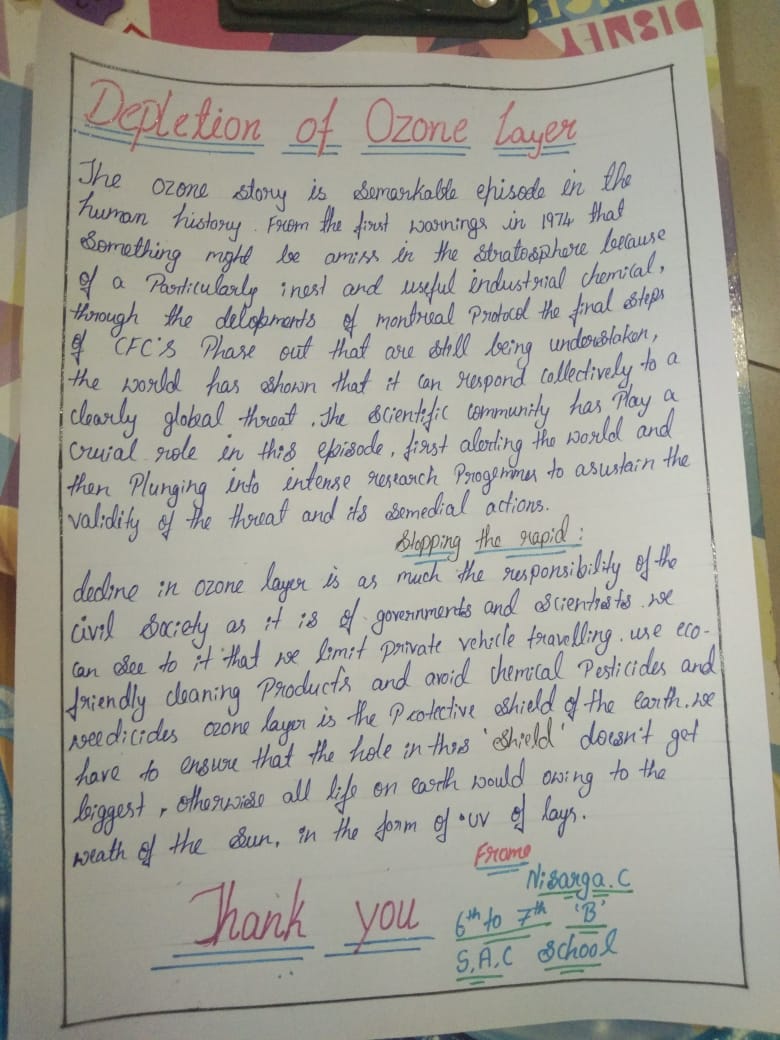 DISNEY
Depletion of Ozone layer
The ozone story is remarkable episode in the
human history. From the first warnings in 1974 that
Something might be amiss in the stratosphere because
of a Particularly inest and useful industrial chemical,
through the delopments of montreal Protocol the final steps
of CFC's Phase out that are still being understaken,
the world has shown that it can respond collectively to a
clearly global threat. The scientific community has Play a
Crucial role in this episode, first alerting the world and
then Plunging into intense research Progemmes to asustain the
validity of the threat and its remedial actions.
Stopping the rapid:
decline in ozone layer is as much the responsibility of the
civil Society as it is of governments and scientests. we
can see to it that we limit private vehicle travelling. use eco-
friendly cleaning Products and avoid chemical Pesticides and
weedicides ozone layer is the Protective shield of the earth. we
have to ensure that the hole in this 'shield' doesn't get
biggest, otherwise all life on earth would owing to the
weath of the Sun, in the form of UV of lays.
Frome
Nisarga.C
Thank you
6th to 7th 'B'
S.A.C School